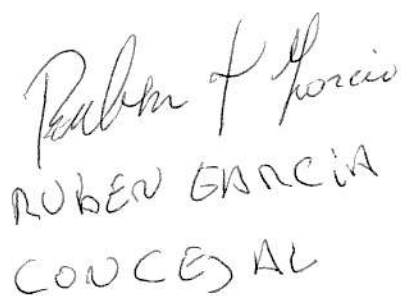 Ruben F Garcia
RUBEN GARCIA
CONCEJAL